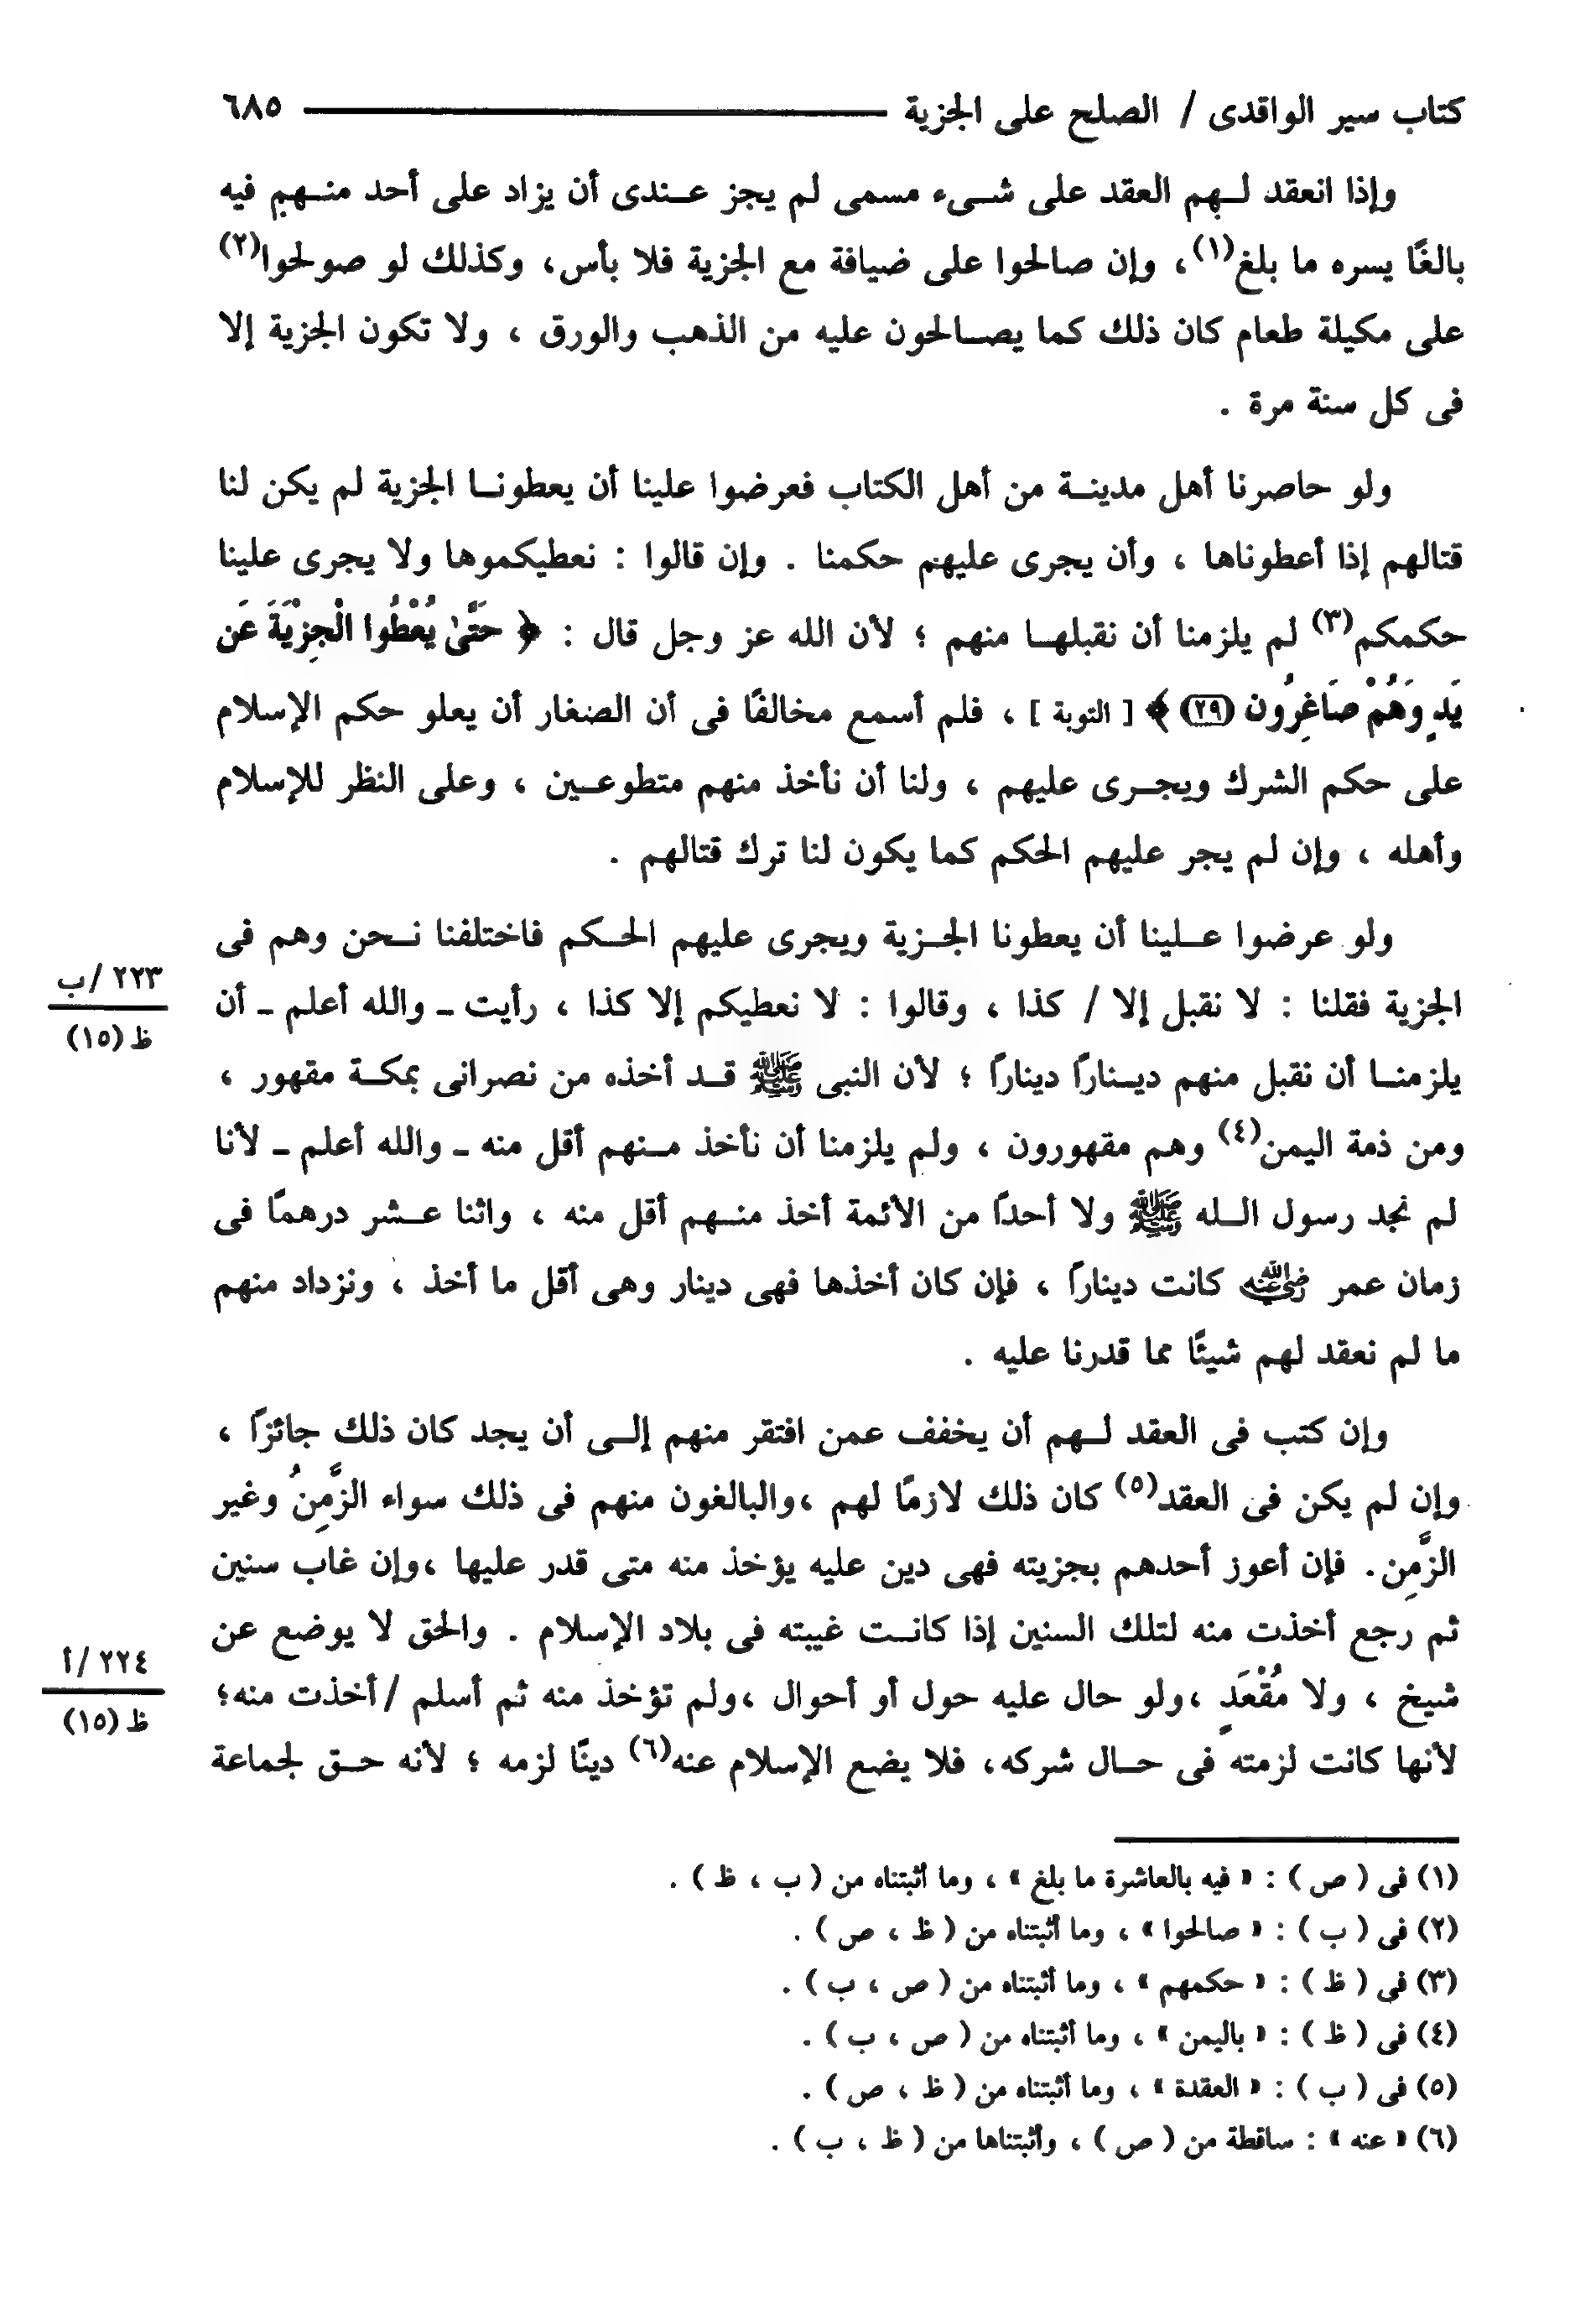 كتاب سير الواقدى / الصلح على الجزية ٦٨٥
وإذا انعقد لهم العقد على شىء مسمى لم يجز عندى أن يزاد على أحد منهم فيه
بالغًا يسره ما بلغ(١)، وإن صالحوا على ضيافة مع الجزية فلا بأس، وكذلك لو صولحوا(٢)
على مكيلة طعام كان ذلك كما يصالحون عليه من الذهب والورق ، ولا تكون الجزية إلا
فى كل سنة مرة .
ولو حاصرنا أهل مدينة من أهل الكتاب فعرضوا علينا أن يعطونا الجزية لم يكن لنا
قتالهم إذا أعطوناها ، وأن يجرى عليهم حكمنا . وإن قالوا : نعطيكموها ولا يجرى علينا
حكمكم(٣) لم يلزمنا أن نقبلها منهم ؛ لأن الله عز وجل قال : ﴿ حَتَّىٰ يُعْطُوا الْجِزْيَةَ عَن
يَدٍ وَهُمْ صَاغِرُون (٢٩) ﴾ [ التوبة ] ، فلم أسمع مخالفًا فى أن الصغار أن يعلو حكم الإسلام
على حكم الشرك ويجرى عليهم ، ولنا أن نأخذ منهم متطوعين ، وعلى النظر للإسلام
وأهله ، وإن لم يجر عليهم الحكم كما يكون لنا ترك قتالهم .
ولو عرضوا علينا أن يعطونا الجزية ويجرى عليهم الحكم فاختلفنا نحن وهم فى
الجزية فقلنا : لا نقبل إلا / كذا ، وقالوا : لا نعطيكم إلا كذا ، رأيت ـ والله أعلم ـ أن
٢٢٣ /ب
ظ (١٥)
يلزمنا أن نقبل منهم دينارًا دينارًا ؛ لأن النبى ﷺ قد أخذه من نصرانى بمكة مقهور ،
ومن ذمة اليمن(٤) وهم مقهورون ، ولم يلزمنا أن نأخذ منهم أقل منه ـ والله أعلم ـ لأنا
لم نجد رسول الله ﷺ ولا أحدًا من الأئمة أخذ منهم أقل منه ، واثنا عشر درهمًا فى
زمان عمر رضي الله عنه كانت دينارًا ، فإن كان أخذها فهى دينار وهى أقل ما أخذ ، ونزداد منهم
ما لم نعقد لهم شيئًا مما قدرنا عليه .
وإن كتب فى العقد لهم أن يخفف عمن افتقر منهم إلى أن يجد كان ذلك جائزًا ،
وإن لم يكن فى العقد(٥) كان ذلك لازمًا لهم ،والبالغون منهم فى ذلك سواء الزَّمِنُ وغير
الزَّمِن. فإن أعوز أحدهم بجزيته فهى دين عليه يؤخذ منه متى قدر عليها ،وإن غاب سنين
ثم رجع أخذت منه لتلك السنين إذا كانت غيبته فى بلاد الإسلام . والحق لا يوضع عن
شيخ ، ولا مُقْعَدٍ ،ولو حال عليه حول أو أحوال ،ولم تؤخذ منه ثم أسلم /أخذت منه؛
٢٢٤ /أ
ظ (١٥)
لأنها كانت لزمته فى حال شركه، فلا يضع الإسلام عنه(٦) دينًا لزمه ؛ لأنه حق لجماعة
(١) فى ( ص ) : « فيه بالعاشرة ما بلغ » ، وما أثبتناه من ( ب ، ظ ) .
(٢) فى ( ب ) : « صالحوا » ، وما أثبتناه من ( ظ ، ص ) .
(٣) فى ( ظ ) : « حكمهم » ، وما أثبتناه من ( ص ، ب ) .
(٤) فى ( ظ ) : « باليمن » ، وما أثبتناه من ( ص ، ب ) .
(٥) فى ( ب ) : « العقدة » ، وما أثبتناه من ( ظ ، ص ) .
(٦) « عنه » : ساقطة من ( ص ) ، وأثبتناها من ( ظ ، ب ) .